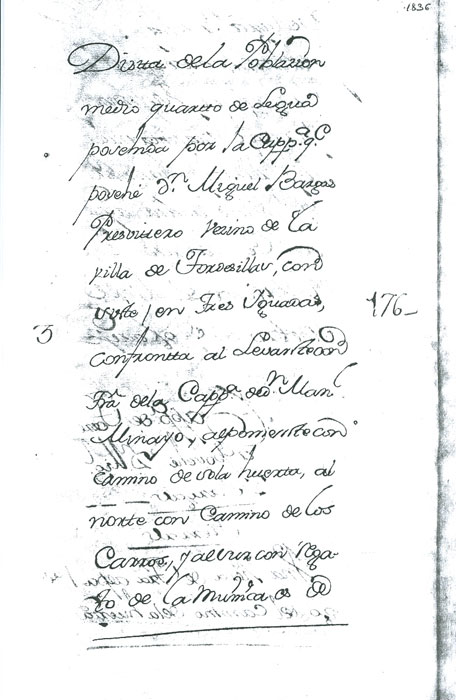 1836
Dista de la Poblazion
medio quarto de Legua
posehida por la Capp.ª q.e
posehe D.n Miguel Bargas
Presvitero vezino de la
villa de Tordesillas, con
siste en Tres Yguadas, 176_
confronta al Levante con
trã de la Capp.ª de D.n Man.l
Minayo, al poniente con
Camino de la huerta, al
norte con Camino de los
Carros, y al sur con rega
to de la